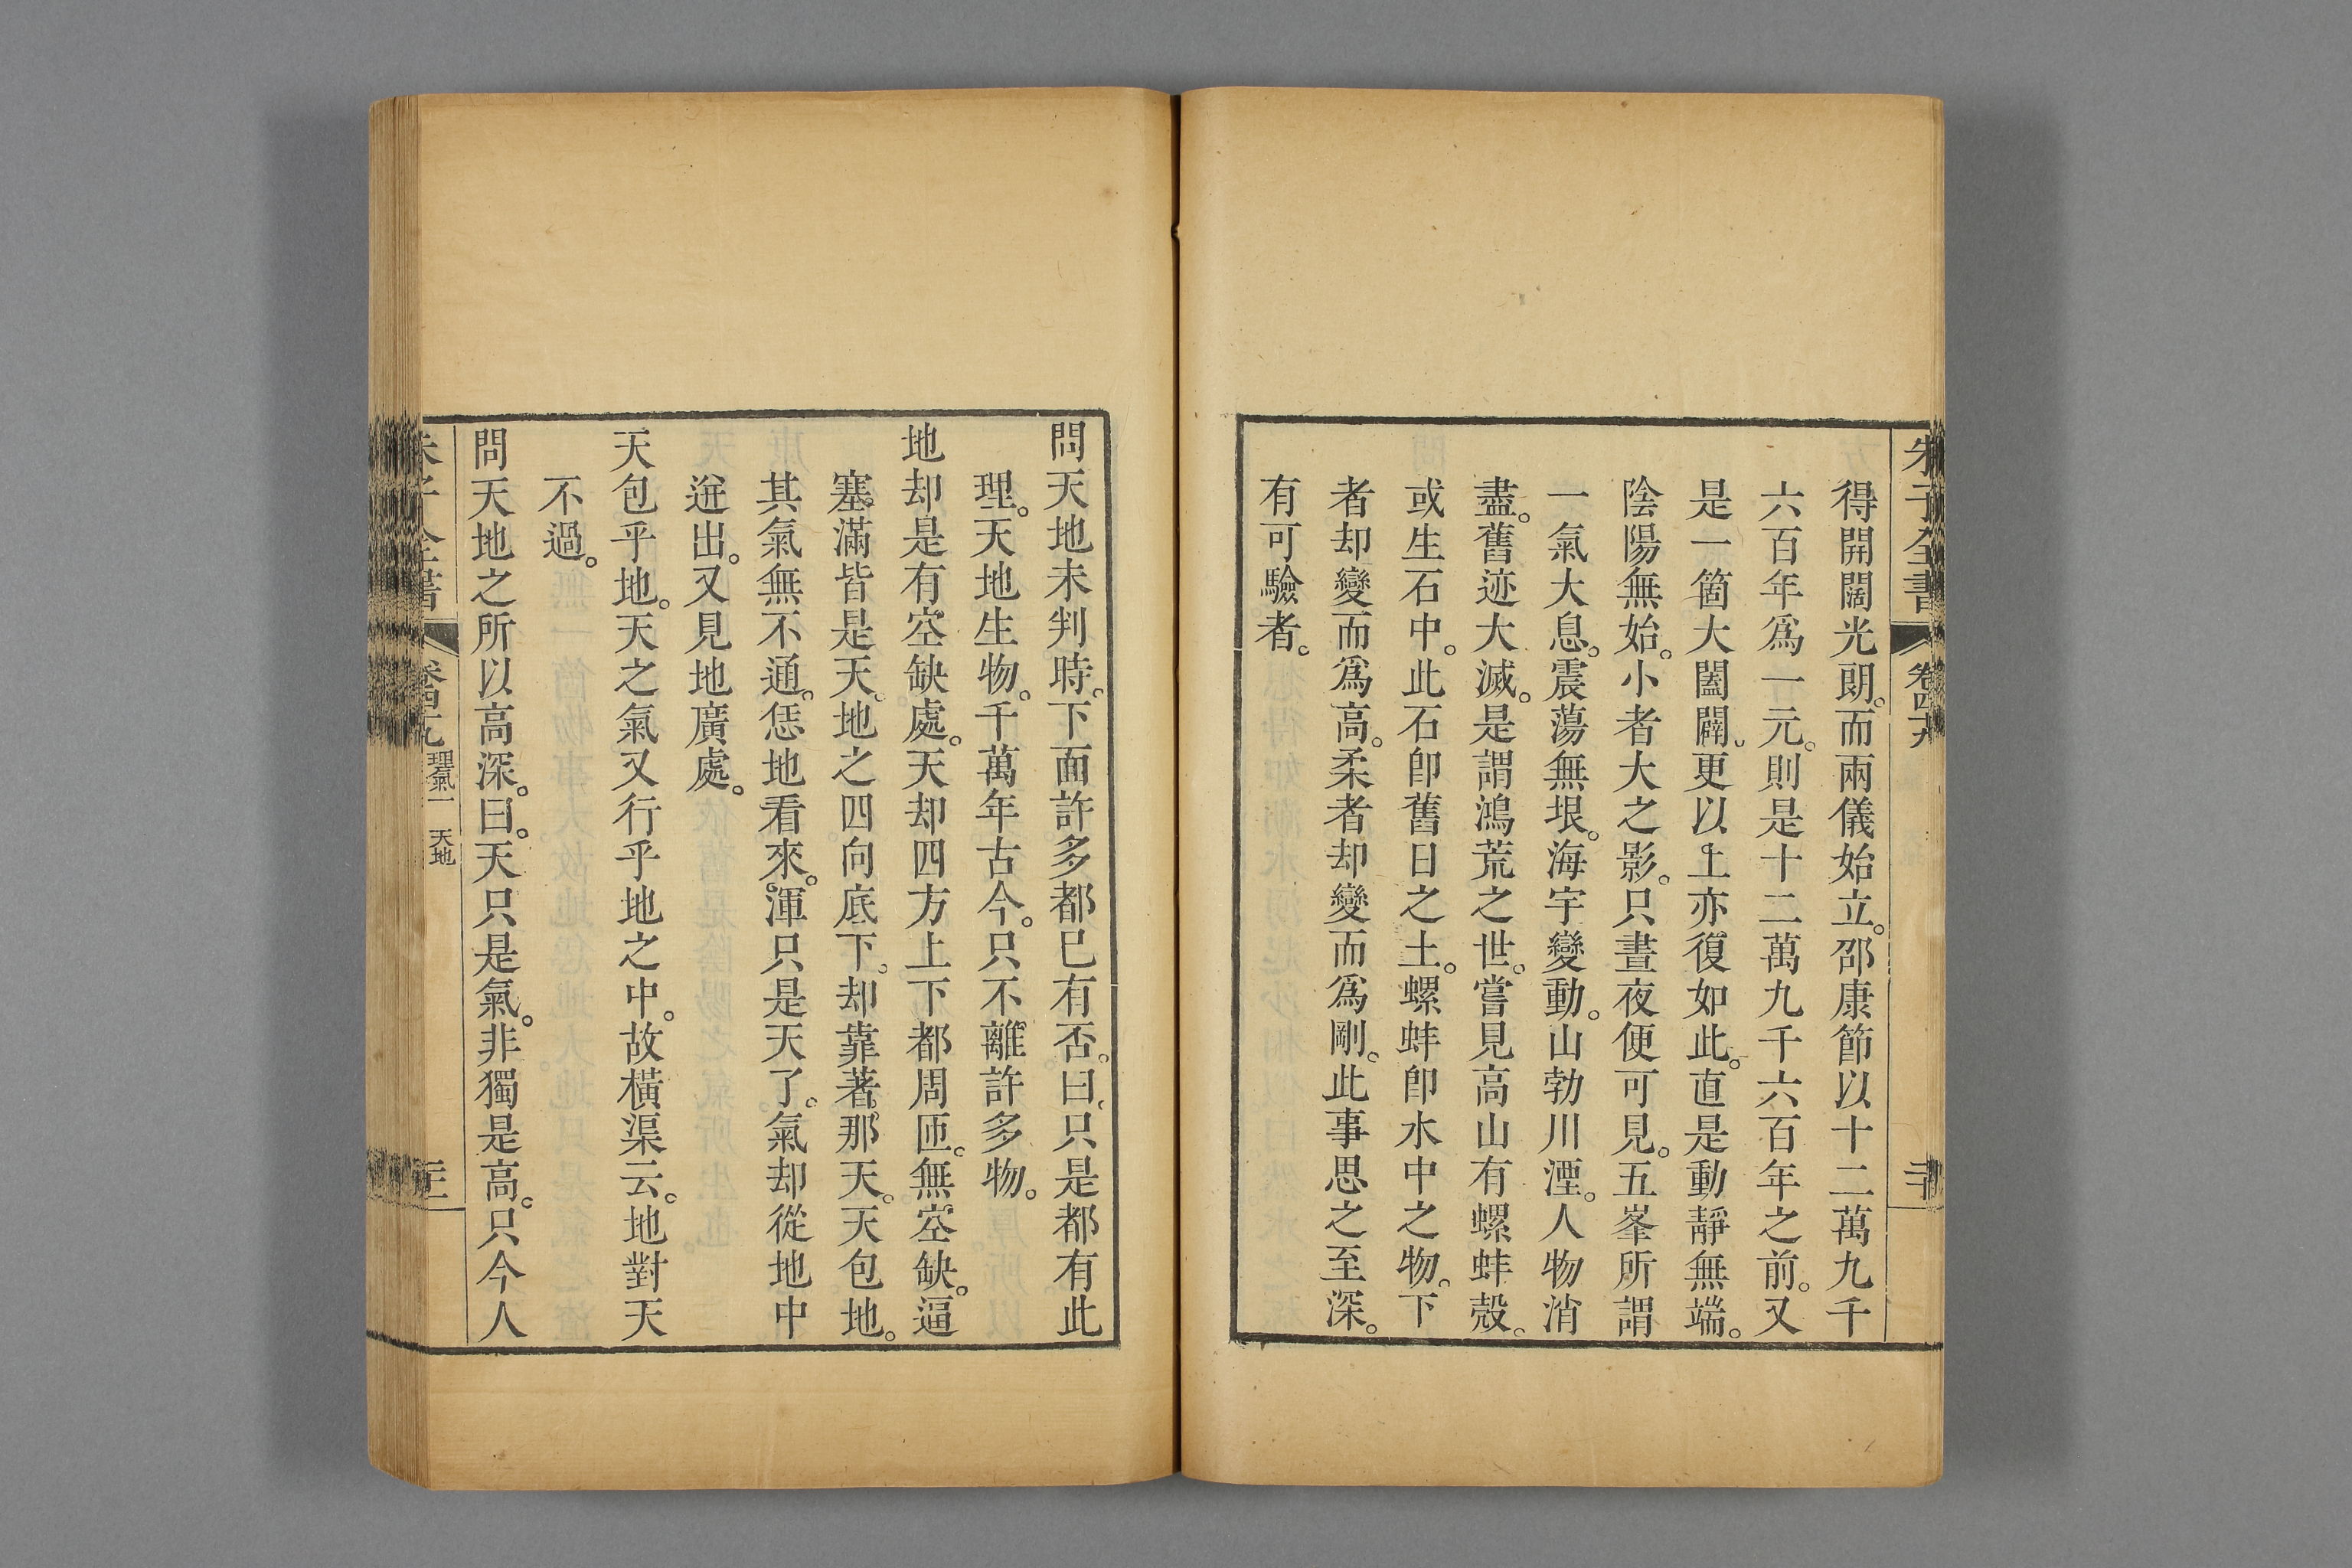 朱子全書 卷四十九 二十
得開闊光朗。而兩儀始立。邵康節以十二萬九千
六百年爲一元。則是十二萬九千六百年之前。又
是一箇大闔闢。更以上亦復如此。直是動靜無端。
陰陽無始。小者大之影。只晝夜便可見。五峯所謂
一氣大息。震蕩無垠。海宇變動。山勃川湮。人物消
盡。舊迹大滅。是謂鴻荒之世。嘗見高山有螺蚌殼。
或生石中。此石卽舊日之土。螺蚌卽水中之物。下
者却變而爲高。柔者却變而爲剛。此事思之至深。
有可驗者。
問天地未判時。下面許多都已有否。曰。只是都有此
理。天地生物。千萬年古今。只不離許多物。
地却是有空缺處。天却四方上下都周匝。無空缺。逼
塞滿皆是天。地之四向底下。却靠著那天。天包地。
其氣無不通。恁地看來。渾只是天了。氣却從地中
迸出。又見地廣處。
天包乎地。天之氣又行乎地之中。故橫渠云。地對天
不過。
問天地之所以高深。曰。天只是氣。非獨是高。只今人
朱子全書 卷四十九 理氣一 天地 二十一